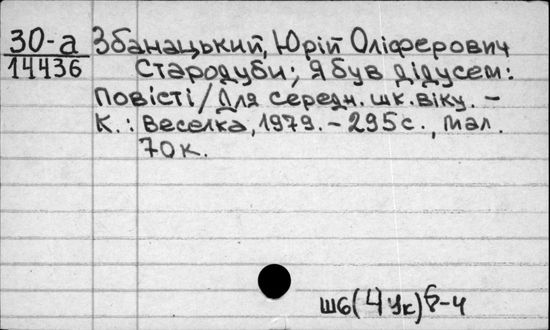 30-а Збанацький, Юрій Оліферович
14436 Стародуби; Я був дідусем:
Повісті/Для середн. шк. віку. –
К.: Веселка, 1979. – 295 с., мал.
70 к.
Ш6(4Ук)6-4